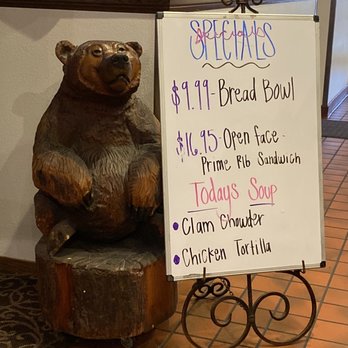 SPECIALS
$9.99-Bread Bowl
$16.95-Open face-
Prime Rib Sandwich
Todays Soup
Clam Chowder
Chicken Tortilla